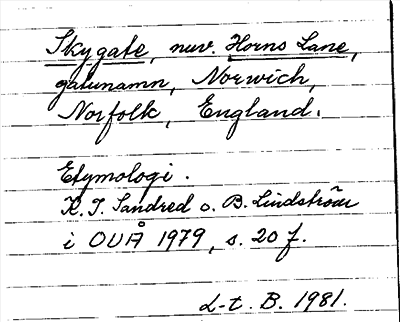 Skygate, nuv. Horns Lane,
gatunamn, Norwich,
Norfolk, England.
Etymologi.
K. I. Sandred o. B. Lindström
i OUÅ 1979, s. 20 f.
L-t. B. 1981.